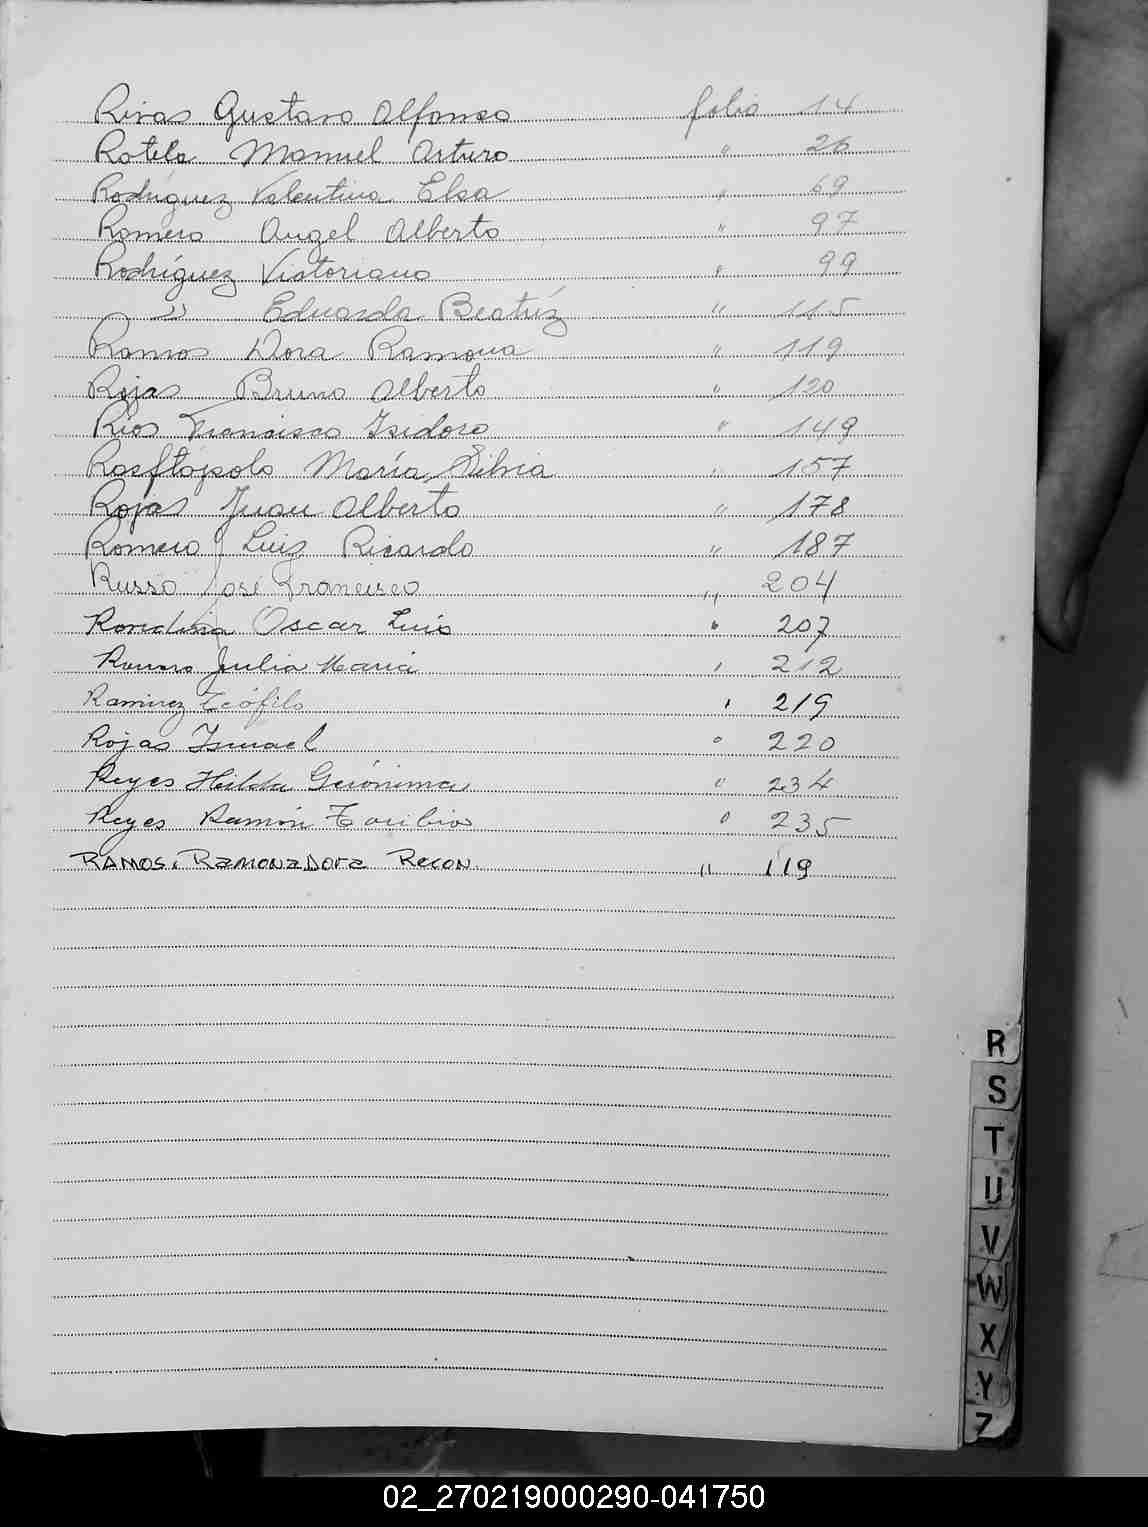 Rivas Gustavo Alfonso folio 14
Rotela Manuel Arturo " 26
Rodriguez Valentina Elsa " 69
Romero Angel Alberto " 97
Rodríguez Victoriano " 99
" Eduarda Beatríz " 115
Ramos Dora Ramona " 119
Rojas Bruno Alberto " 120
Rios Francisco Isidoro " 149
María Silvia " 157
Rojas Juan Alberto " 178
Romero Luis Ricardo " 187
Russo José Francisco " 204
Rondina Oscar Luis " 207
Julia Maria " 212
Ramirez Teófilo " 219
Rojas Ismael " 220
Reyes Hilda Gerónima " 234
Reyes Ramón Toribio " 235
RAMOS. RamonaDora Recon. " 119
R
S
T
U
V
W
X
Y
Z
02_270219000290-041750